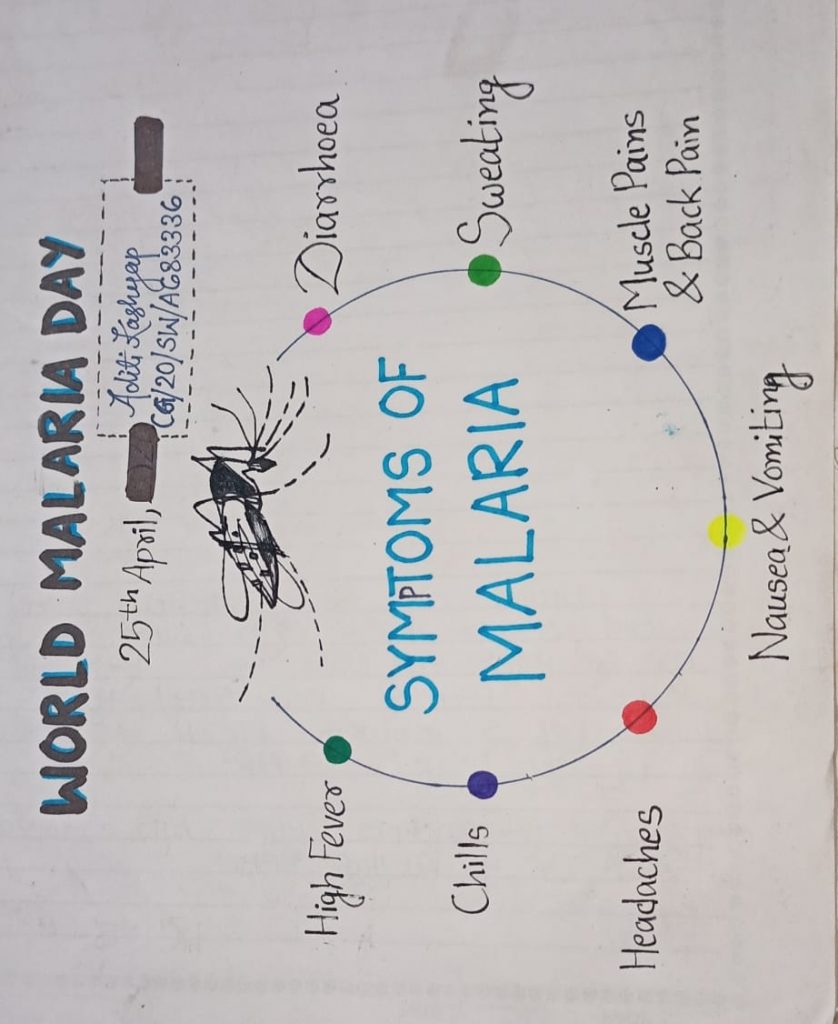 WORLD MALARIA DAY
25th April,
Aditi Kashyap
CG/20/SW/AG83336
SYMPTOMS OF
MALARIA
High Fever
Chills
Headaches
Nausea & Vomiting
Muscle Pains
& Back Pain
Sweating
Diarrhoea